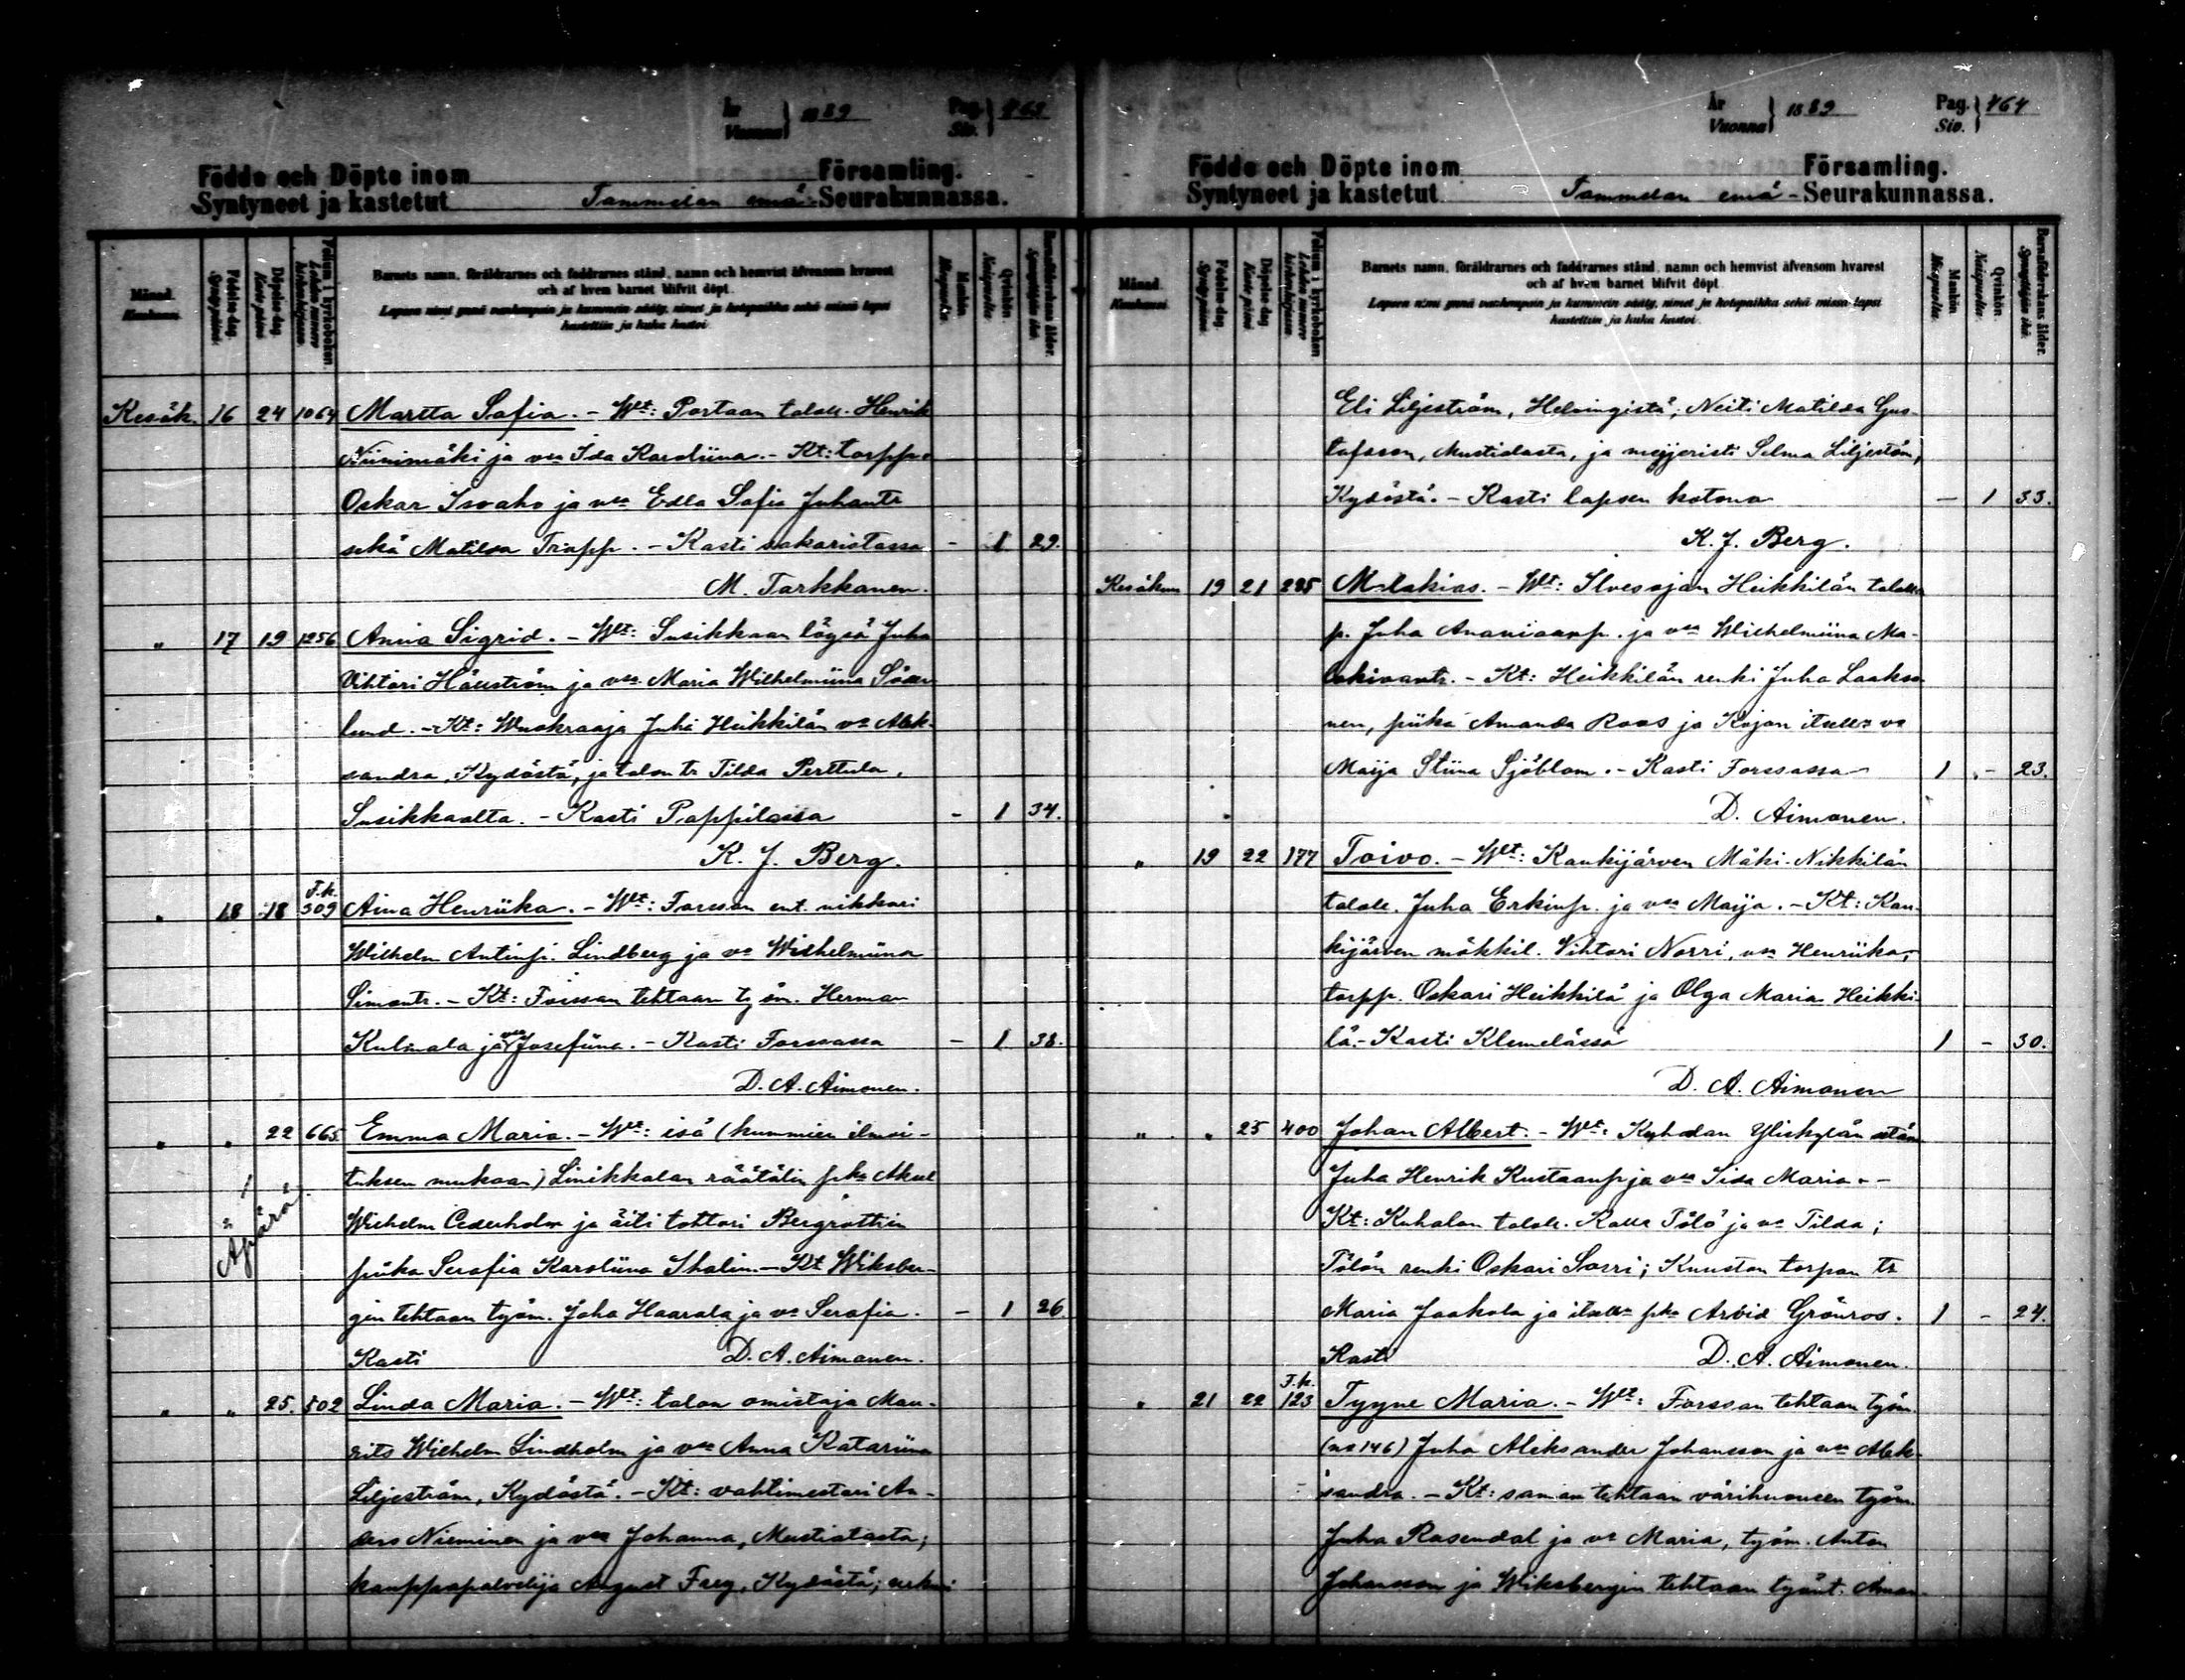 År
Vuonna } 1889 Pag. Siv. } 463
Födde och Döpte inom Församling.
Syntyneet ja kastetut Tammelan emä- Seurakunnassa.
Månad. Kuukausi.
Födelse-dag. Syntypäivä.
Döpelse-dag. Kaste-päivä
Folium i kyrkoboken. Lehden numero kirkonkirjassa.
Barnets namn, föräldrarnes och faddrarnes stånd, namn och hemvist äfvensom hvarest
och af hvem barnet blifvit döpt.
Lapsen nimi ynnä vanhempain ja kummein sääty, nimet ja kotopaikka sekä missä lapsi
kastettiin ja kuka kastoi.
Mankön. Miespuolia.
Qvinkön. Naispuolia.
Barnaföderskans ålder. Synnyttäjän ikä.
Kesäk. 16 24 1064 Martta Sofia. - Wt: Portaan taloll. Henrik
Niinimäki ja va Ida Karoliina. - Kt: torpp.
Oskar Isoaho ja va Edla Sofia Juhantr
sekä Matilda Trapp. - Kasti sakaristassa - 1 29.
M. Tarkkanen.
" 17 19 1256 Anna Sigrid. - Wt: Susikkaan löysä Juha
Vihtori Hällström ja va Maria Wilhelmiina Söder-
lund. - Kt: Wuokraaja Juha Heikkilän va Alek-
sandra, Kydöstä, ja talon tr Tilda Perttula,
Susikkaalta. - Kasti Pappilassa - 1 34.
K. J. Berg.
" 18 18 T.k. 509 Aina Henriika. - Wt: Forssan ent. nikkari
Wilhelm Antinp. Lindberg ja va Wilhelmiina
Simontr. - Kt: Forssan tehtaan työm. Herman
Kulmala ja va Josefiina. - Kasti Forssassa - 1 38.
D. A. Aimonen.
" " 22 665 Emma Maria. - Wt: isä (kummien ilmoi-
tuksen mukaan) Linikkalan räätälin pka Aksel
Wilhelm Cederholm ja äiti tohtori Bergrothin
piika Serafia Karoliina Thalin. - Kt Wiksber-
gin tehtaan työm. Juha Haarala ja va Serafia. - 1 26.
Kasti D. A. Aimonen.
Äpärä
" " 25. 502 Linda Maria. - Wt: talon omistaja Mau-
rits Wilhelm Lindholm ja va Anna Katariina
Liljeström, Kydöstä. - Kt: vahtimestari An-
ders Nieminen ja va Johanna, Mustialasta;
kauppapalvelija August Frey, Kydöstä;
År
Vuonna } 1889 Pag. Siv. } 464
Födde och Döpte inom Församling.
Syntyneet ja kastetut Tammelan emä- Seurakunnassa.
Månad. Kuukausi.
Födelse-dag. Syntypäivä.
Döpelse-dag. Kaste-päivä
Folium i kyrkoboken. Lehden numero kirkonkirjassa.
Barnets namn, föräldrarnes och faddrarnes stånd, namn och hemvist äfvensom hvarest
och af hvem barnet blifvit döpt.
Lapsen nimi ynnä vanhempain ja kummein sääty, nimet ja kotopaikka sekä missä lapsi
kastettiin ja kuka kastoi.
Mankön. Miespuolia.
Qvinkön. Naispuolia.
Barnaföderskans ålder. Synnyttäjän ikä.
Eli Liljeström, Helsingistä; Neiti Matilda Gus-
tafsson, Mustialasta, ja meijeristi Selma Liljeström,
Kydöstä. - Kasti lapsen kotona - 1 33.
K. J. Berg.
Kesäkuu 19 21 285 Malakias. - Wt: Ilvesojan Heikkilän talokk.
p. Juha Ananiaanp. ja va Wilhelmiina Ma-
lakivantr. - Kt: Heikkilän renki Juha Laakso-
nen, piika Amanda Roos ja Kojon itsell. va
Maija Stiina Sjöblom. - Kasti Forssassa 1 - 23.
D. Aimonen.
" 19 22 177 Toivo. - Wt: Kaukijärven Mäki-Nikkilän
talok. Juha Erkinp. ja va Maija. - Kt: Kau-
kijärven mökkil. Vihtori Norri, va Henriika,
torpp. Oskari Heikkilä ja Olga Maria Heikki-
lä. - Kasti Klemelässä 1 - 30.
D. A. Aimonen
" " 25 400 Johan Albert. - Wt: Kuhalan Ylikylän
Juha Henrik Kustaanp ja va Iida Maria. -
Kt: Kuhalan talok. Kalle Tölö ja va Tilda;
Tölön renki Oskari Sorri; Kuuston torpan tr
Maria Jaakola ja itsell. pka Arvid Grönroos. 1 - 24.
Kasti D. A. Aimonen.
" 21 22 T.k. 123 Tyyne Maria. - Wt: Forssan tehtaan työm.
(no 146) Juha Aleksander Johansson ja va Alek-
sandra. - Kt: saman tehtaan värihuoneen työm.
Juha Rosendal ja va Maria, työm. Anton
Johansson ja Wiksbergin tehtaan työnt. Aman-